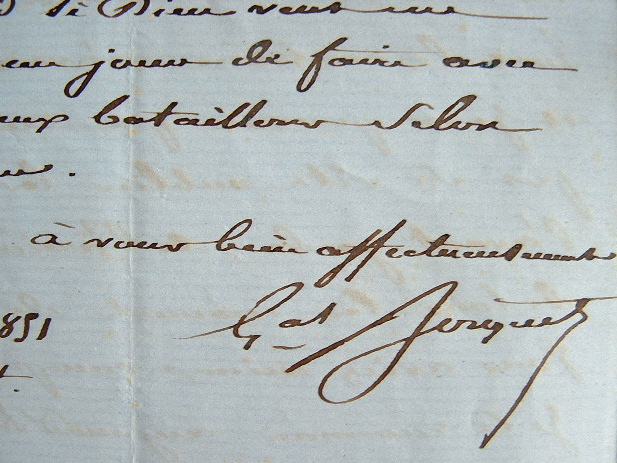 si Dieu veut me
un jour de faire avec
eux bataillons selon
.
à vous bien affectueusement
851
Gal Forget
t.